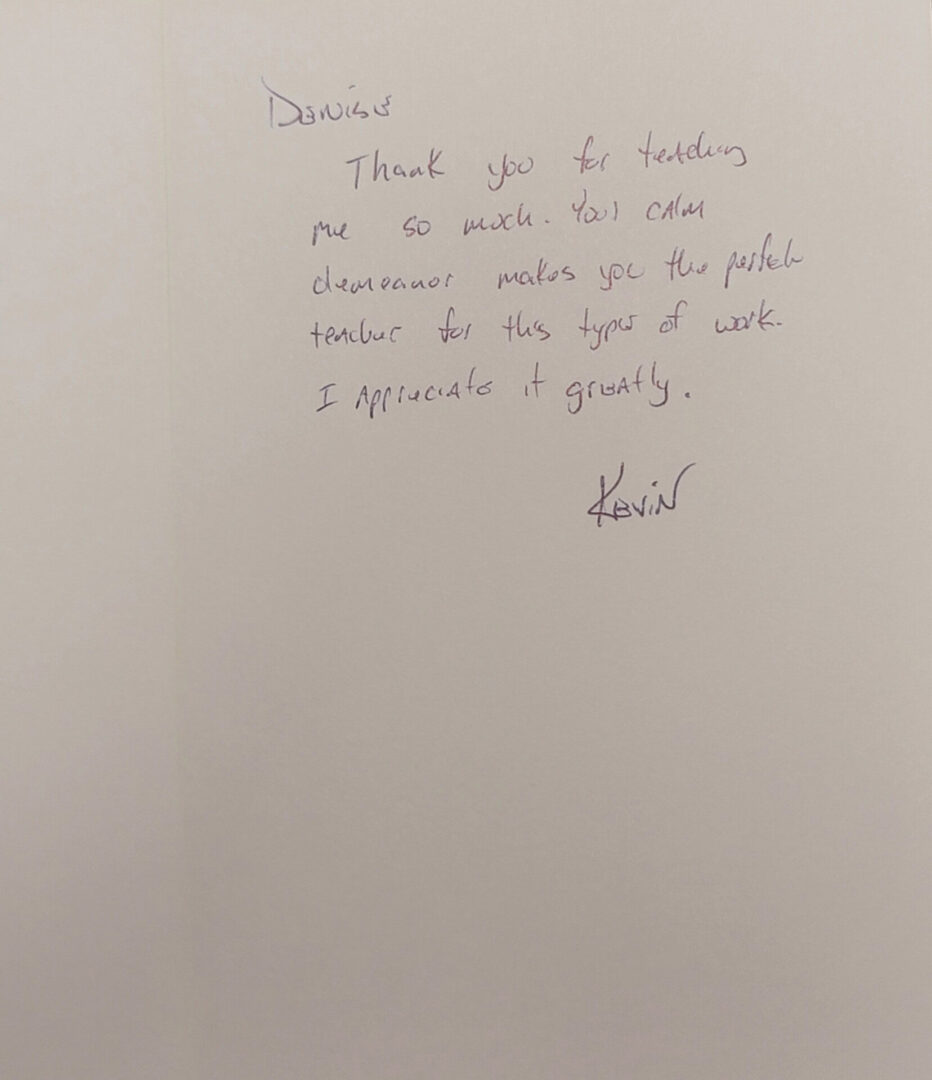 Denise
Thank you for teaching
me so much. Your calm
demeanor makes you the perfect
teacher for this type of work.
I Appreciate it greatly.
Kevin